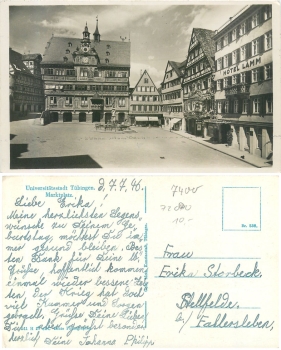 HOTEL LAMM
Universitätsstadt Tübingen.
Marktplatz.
d. 7.7.46.
7400
10.-
Liebe Erika!
Meine herzlichsten Segens-
wünsche zu Deinem Ge-
burtstag, möchtest Du im-
mer gesund bleiben. Bes-
ten Dank für Deine lb.
Grüße, hoffentlich kommen
einmal wieder bessere Zei-
ten. Der Krieg hat Gott
viel Kummer und Sorgen
Grüße Deine Eltern
besonders
herzlich Deine Johanna Philipp
Frau
Erika Storbeck
b/ Fallersleben.